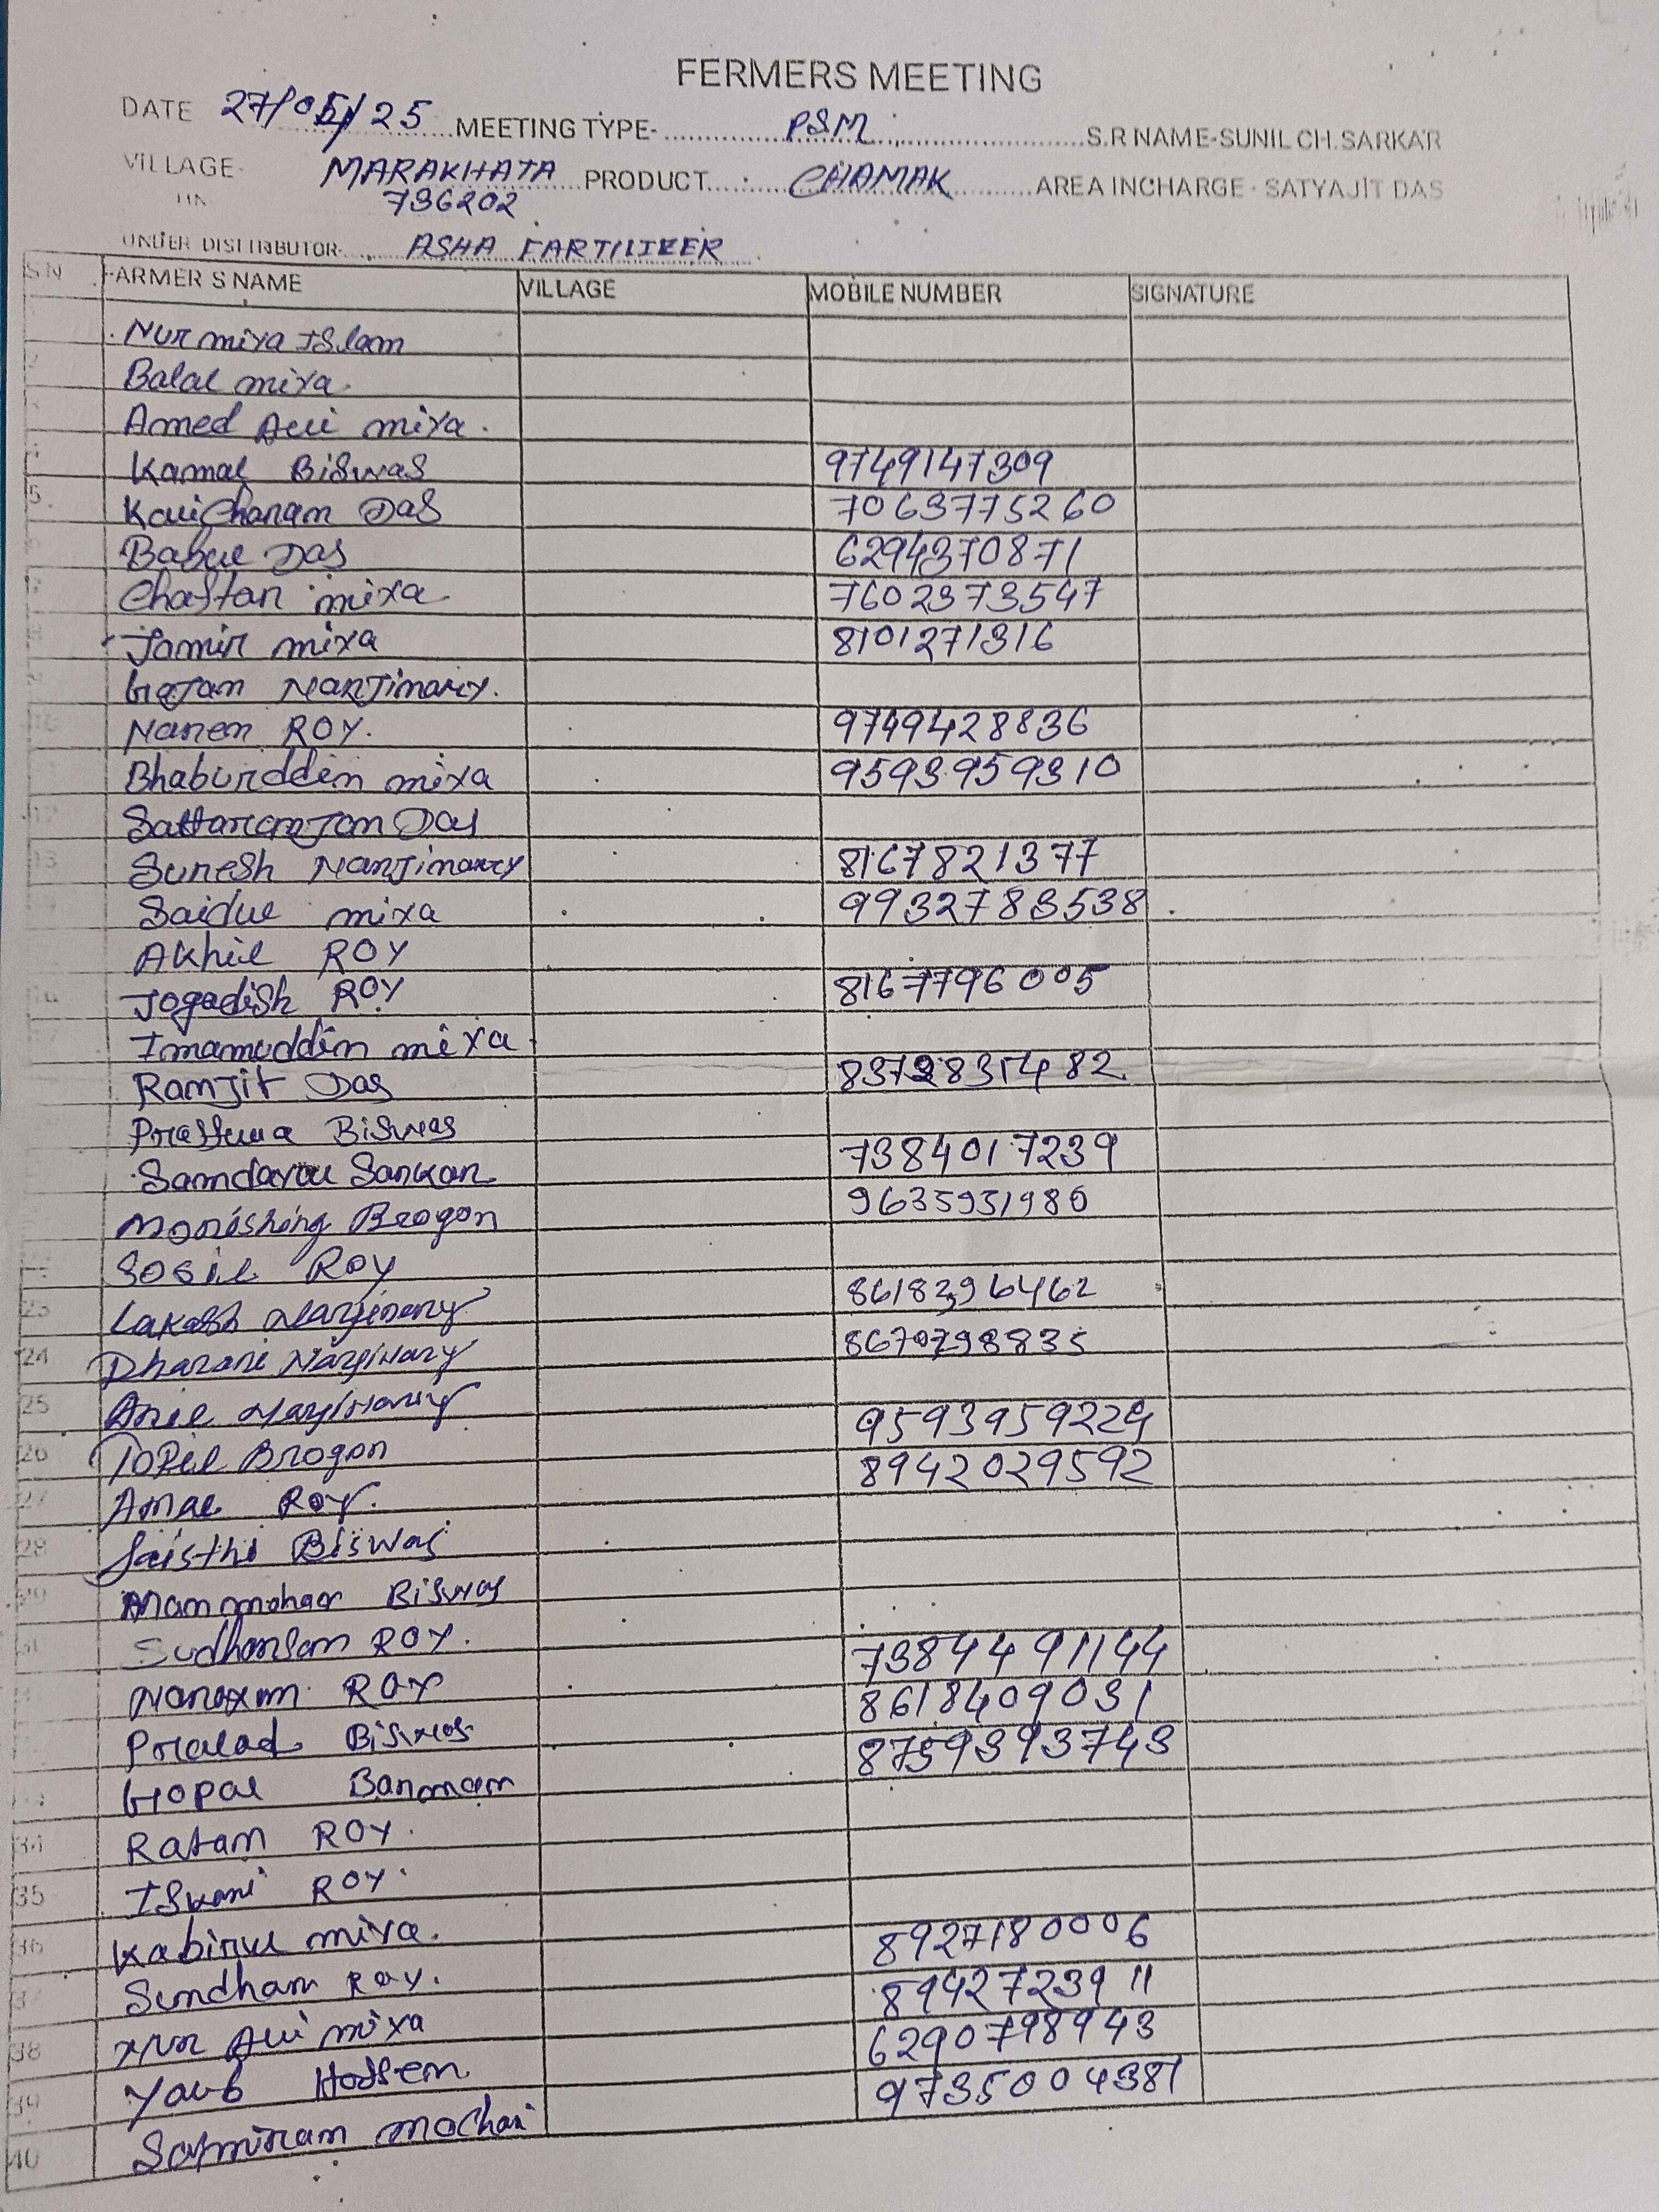 FERMERS MEETING
DATE 27/05/25 MEETING TYPE- PSM S.R NAME-SUNIL CH.SARKAR
VILLAGE- MARAKHATA PRODUCT CHAMAK AREA INCHARGE - SATYAJIT DAS
736202
UNDER DISTRIBUTOR- ASHA FARTILIZER
SN FARMER S NAME VILLAGE MOBILE NUMBER SIGNATURE
Nur miya Islam
2 Balal miya
3 Amed Ali miya.
4 Kamal Biswas 9749147309
5. Kalicharan Das 70637775260
Babul Das 6294370871
7 miya 7602373547
8 Jamir miya 8101271316
Gajan Narjinary.
10 Naren ROY. 9749428836
Bhaburddin miya 9593959310
12 Das
13 Suresh Narjinary 8167821377
Saidul miya 9932783538
Akhil ROY
16 Jogadish ROY 8167796005
17 Imamuddin miya
Ranjit Das
Biswas
Sarkar 7384017239
Monishing Brogon 9635951980
Sosil Roy
23 Lakash Narjinary 8618396462
24 Dharani Narjinary 8670798835
25 Anil Narjinary
26 Topil Brogon 9593959229
27 Amal Roy. 8942029592
28 Biswas
29 Manmohan Biswas
30 ROY.
Narayan ROY 73844491144
Pralad Biswas 8618409031
Gopal Barman 8759393743
34 Ratan ROY.
35 ROY.
36 Kabirul miya.
37 Roy. 8927180006
38 Nur Ali miya 8942723911
39 Yaub Hossen 62907989 43
40 9735004381